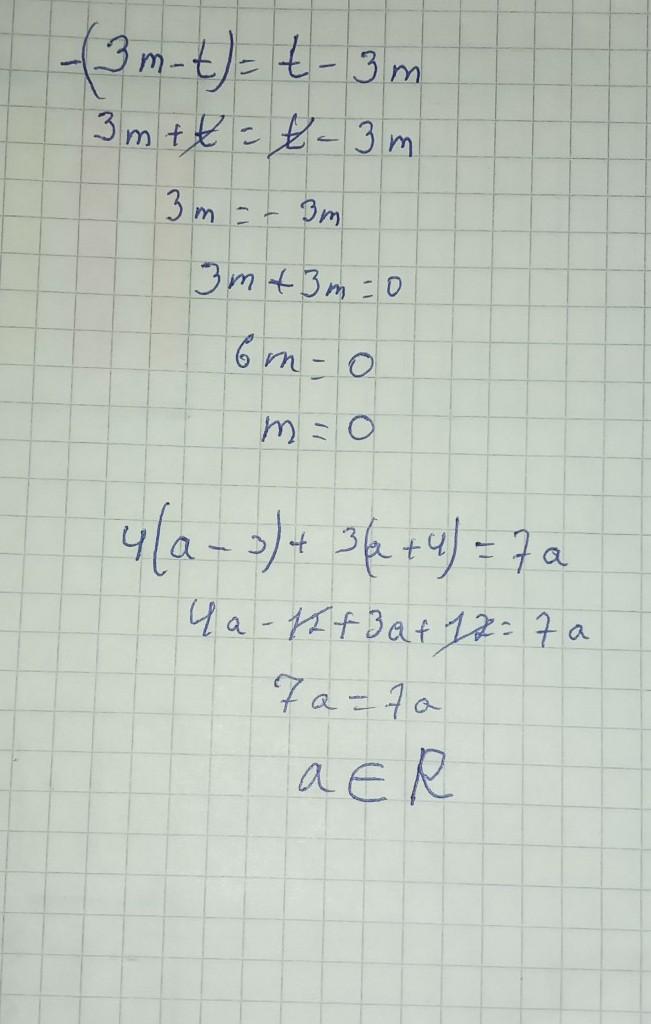 -(3m-t)= t - 3m
3m+t = t - 3m
3m = - 3m
3m + 3m = 0
6m = 0
m = 0
4(a - 3) + 3(a+4) = 7a
4a - 12 + 3a + 12 = 7a
7a = 7a
a ∈ R